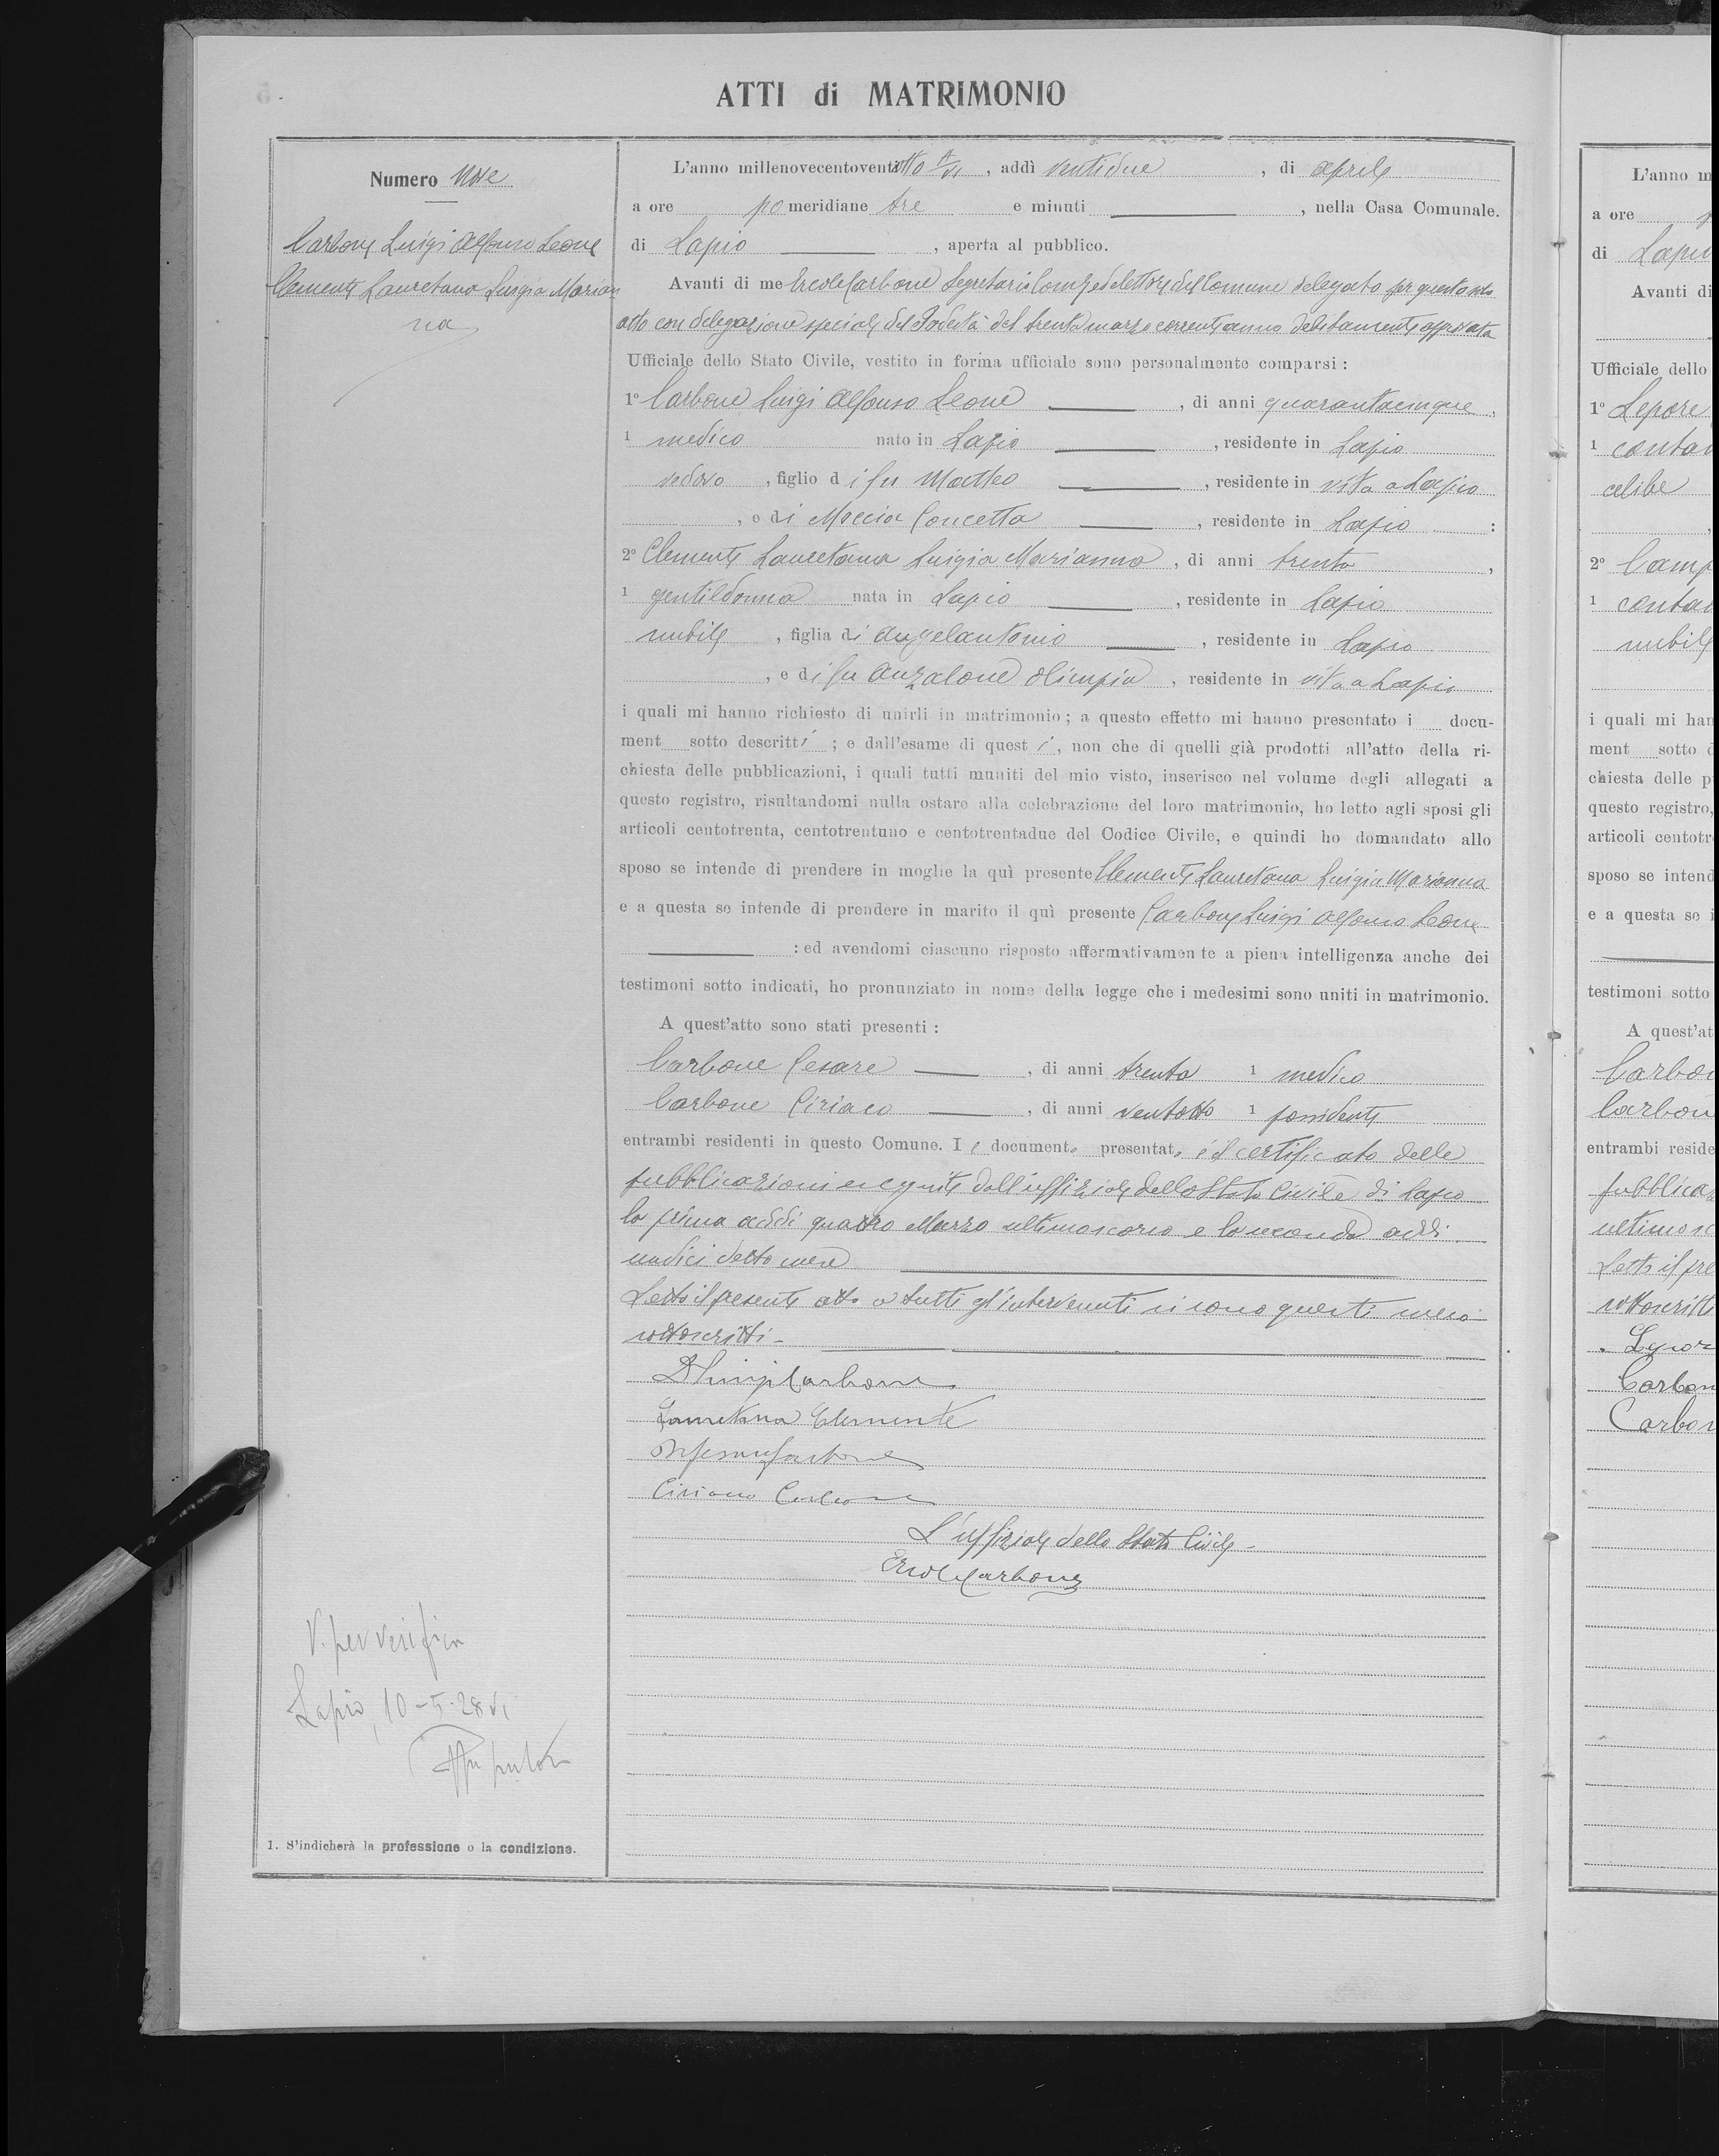 ATTI di MATRIMONIO
Numero Nove
Carbone Luigi Alfonso Leone
Clemente Lauretana Luigia Marian
na
L'anno millenovecentoventiotto A VI, addì ventidue, di Aprile
a ore pomeridiane tre e minuti ———, nella Casa Comunale.
di Lapio ———, aperta al pubblico.
Avanti di me Ercole Carbone Segretario Comle del Comune delegato per questo solo
atto con delegazione speciale del Podestà del trenta marzo corrente anno debitamente approvata
Ufficiale dello Stato Civile, vestito in forma ufficiale sono personalmente comparsi:
1º Carbone Luigi Alfonso Leone ———, di anni quarantacinque,
1 medico nato in Lapio ———, residente in Lapio
vedovo, figlio di fu Matteo ———, residente in vita a Lapio
, e di Moccia Concetta ———, residente in Lapio :
2º Clemente Lauretana Luigia Marianna, di anni trenta,
1 gentildonna nata in Lapio ———, residente in Lapio
nubile, figlia di Angelantonio ———, residente in Lapio
, e di fu Anzalone Olimpia, residente in vita a Lapio
i quali mi hanno richiesto di unirli in matrimonio; a questo effetto mi hanno presentato i docu-
ment sotto descritti; e dall'esame di questi, non che di quelli già prodotti all'atto della ri-
chiesta delle pubblicazioni, i quali tutti muniti del mio visto, inserisco nel volume degli allegati a
questo registro, risultandomi nulla ostare alla celebrazione del loro matrimonio, ho letto agli sposi gli
articoli centotrenta, centotrentuno e centotrentadue del Codice Civile, e quindi ho domandato allo
sposo se intende di prendere in moglie la quì presente Clemente Lauretana Luigia Marianna
e a questa se intende di prendere in marito il quì presente Carbone Luigi Alfonso Leone
——— : ed avendomi ciascuno risposto affermativamente a piena intelligenza anche dei
testimoni sotto indicati, ho pronunziato in nome della legge che i medesimi sono uniti in matrimonio.
A quest'atto sono stati presenti:
Carbone Cesare ———, di anni trenta 1 medico
Carbone Ciriaco ———, di anni ventotto 1 possidente
entrambi residenti in questo Comune. I documento presentato è il certificato delle
pubblicazioni eseguite dall'uffiziale dello Stato Civile di Lapio
la prima addì quattro Marzo ultimoscorso e la seconda addì
undici detto mese
Letto il presente atto a tutti gl'intervenuti si sono questi meco
sottoscritti -
Dr Luigi Carbone
Lauretana Clemente
Carbone
Ciriaco Carbone
L'uffiziale dello Stato Civile -
Ercole Carbone
V. per verifica
Lapio, 10-5-28 VI
1. S'indicherà la professione o la condizione.
L'anno m
a ore
di Lapio
Avanti di
Ufficiale dello
1º Lepore
1 contad
celibe
2º Camp
1 contad
nubile
i quali mi han
ment sotto d
chiesta delle p
questo registro,
articoli centotr
sposo se intend
e a questa se i
testimoni sotto
A quest'at
Carbon
Carbon
entrambi reside
pubblicaz
ultimosc
Letto il pre
sottoscritti
Carbon
Carbon